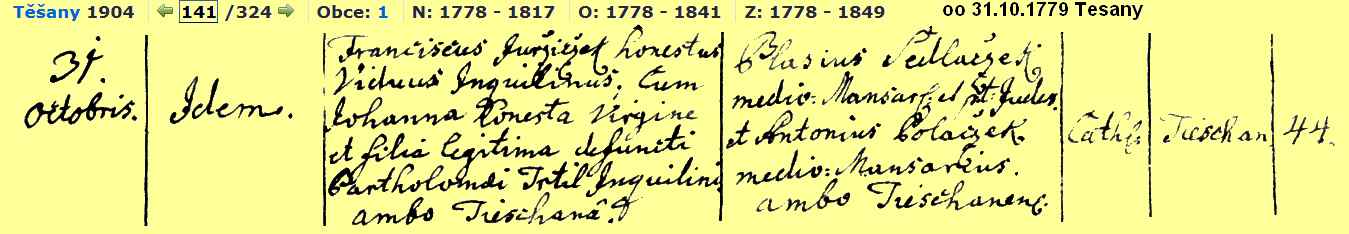 Těšany 1904 141 /324 Obce: 1 N: 1778 - 1817 O: 1778 - 1841 Z: 1778 - 1849 oo 31.10.1779 Tesany
31.
Octobris.
Idem.
Franciscus Jurziczek honestus
Viduus Inquilinus, Cum
Johanna Honesta Virgine
et filia legitima defuncti
Bartholomæi Trtil Inquilini
ambo Tieschanẽ.
Blasius Sedlaczek
medio: Mansar: et p:t: Judex
et Antonius Polaczek
medio: Mansarius.
ambo Tieschanenẽ.
Cath:
Tieschan
44.